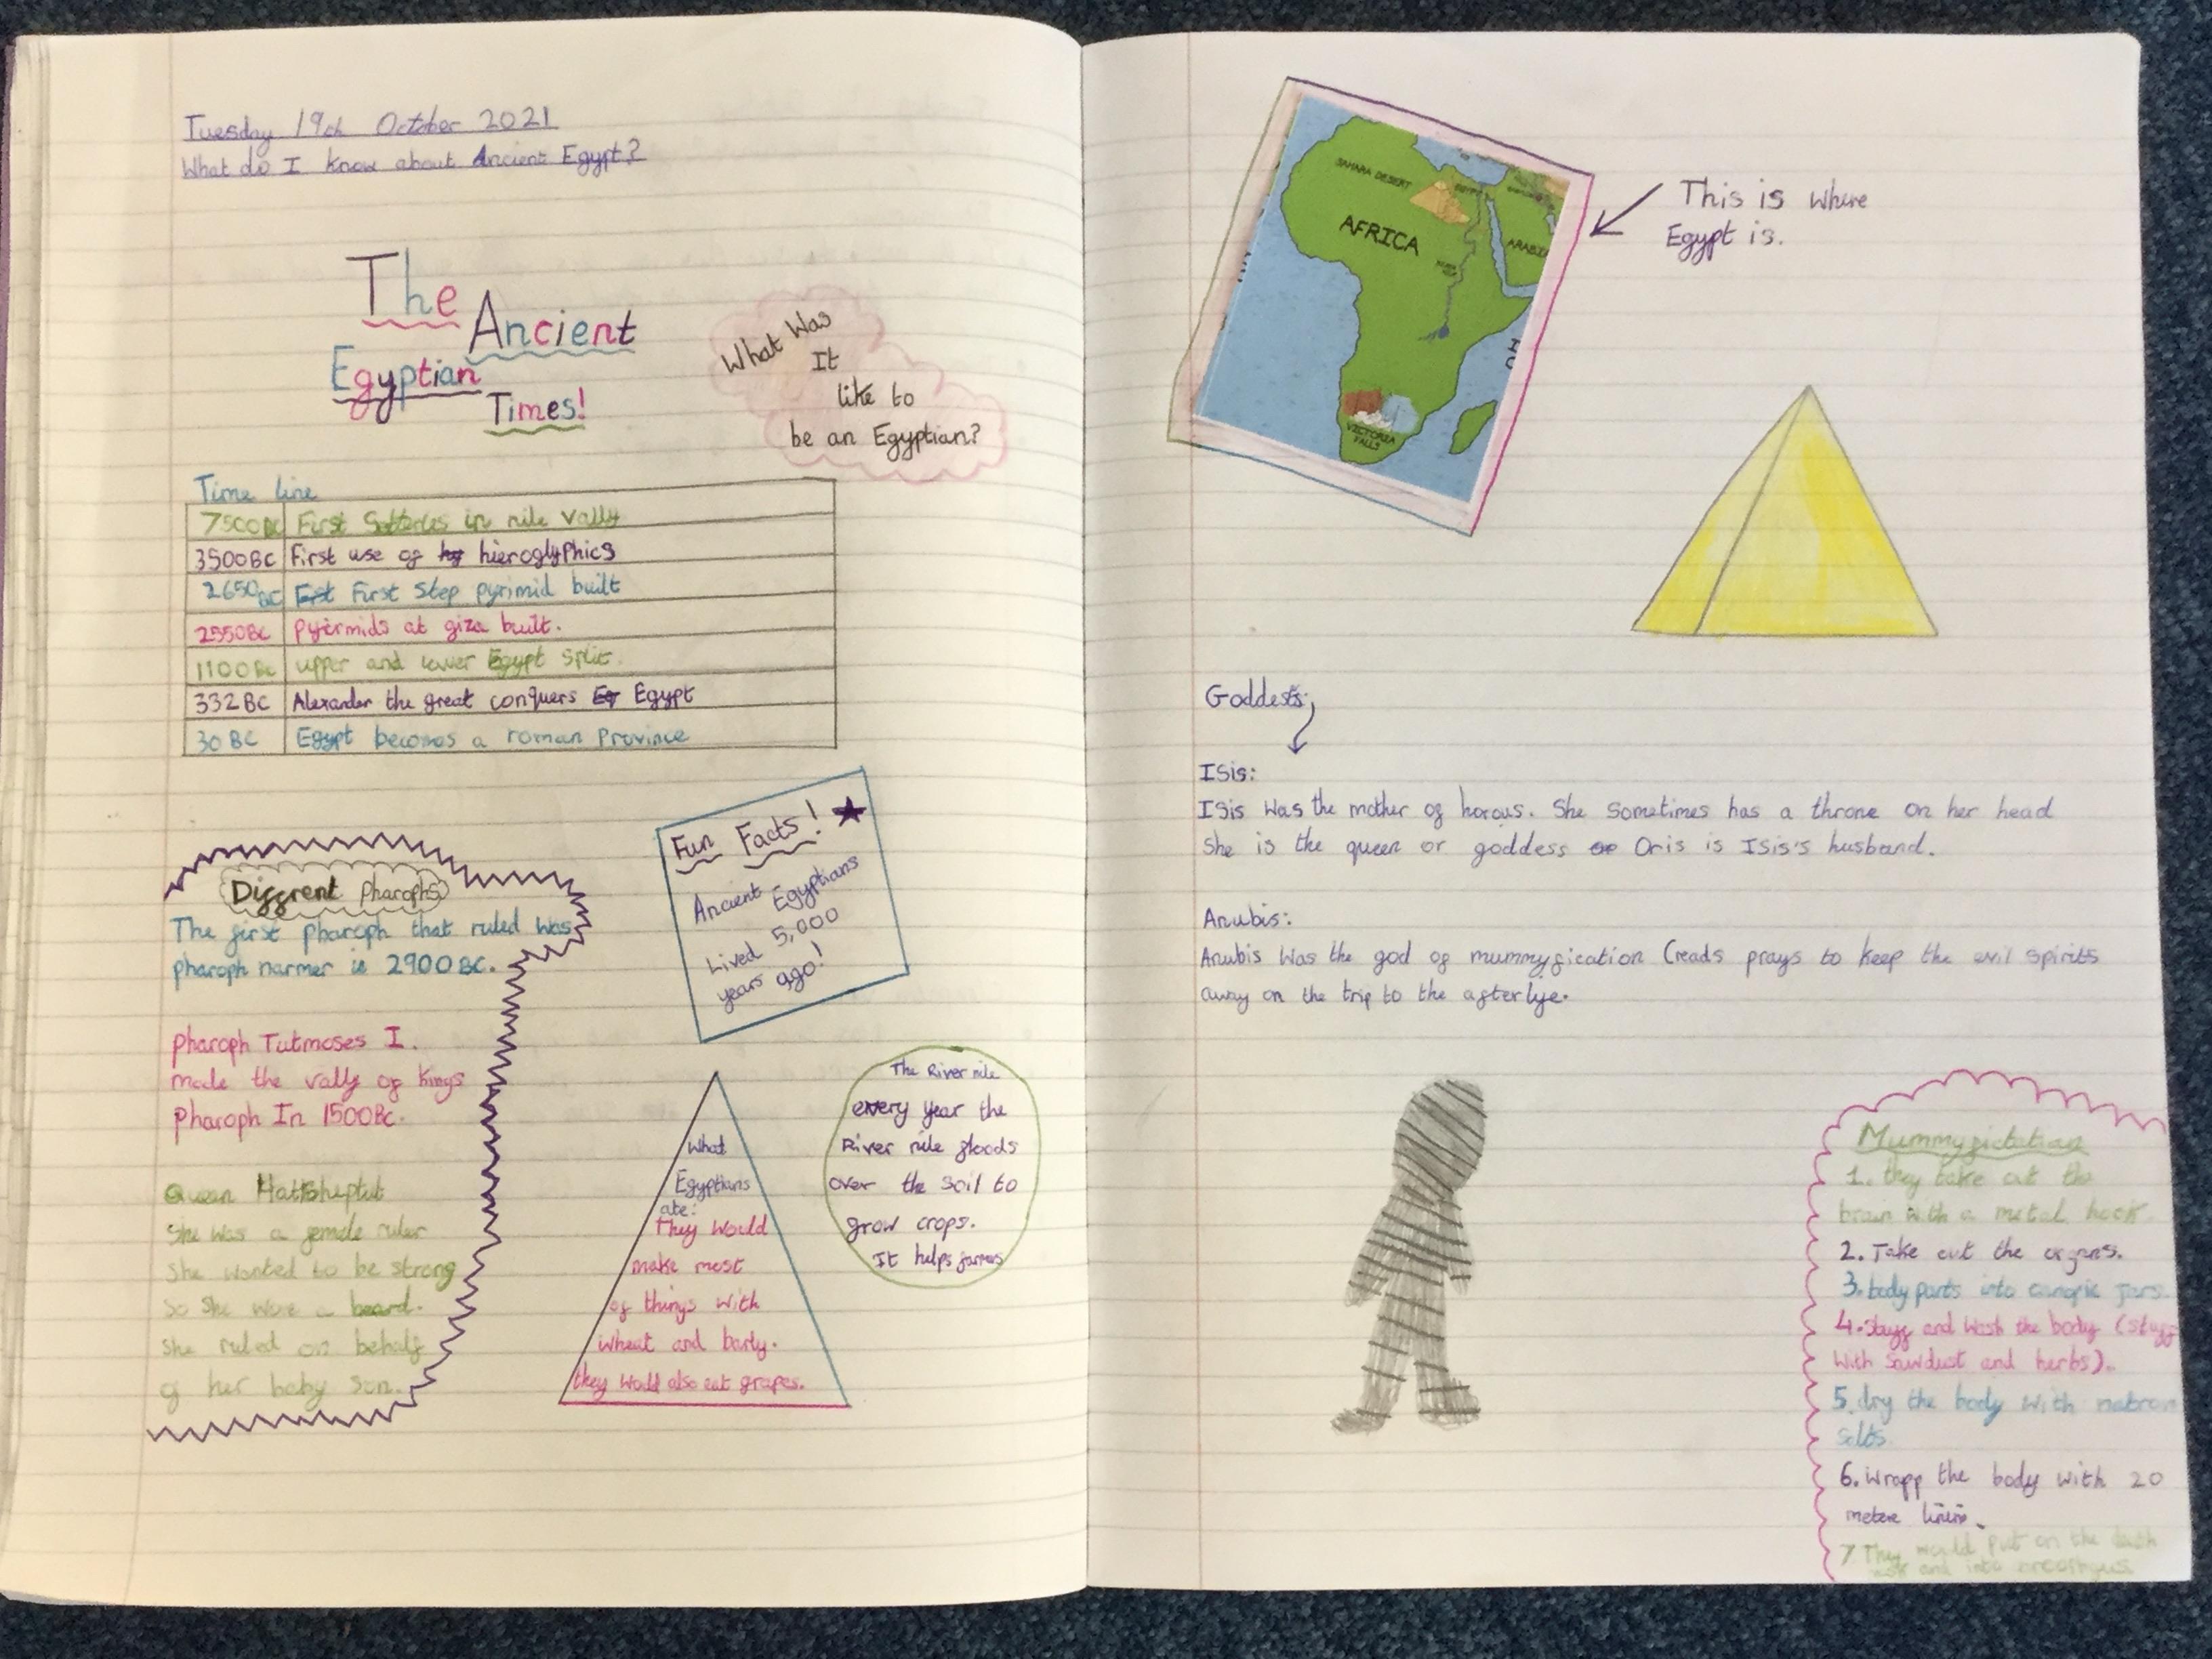 Tuesday 19th October 2021
What do I know about Ancient Egypt?
The
Ancient
Egyptian
Times!
What Was
It
like to
be an Egyptian?
Time line
7500BC First in nile vally
3500BC First use of hieroglyphics
2650BC First Step pyrimid built
2550BC Pyermids at giza built.
1100BC upper and lower Egypt split.
332BC Alexander the great conquers Eg Egypt
30BC Egypt becomes a roman Province
Diffrent Pharophs
The first pharoph that ruled was
pharoph narmer is 2900BC.
Pharoph Tutmoses I.
made the vally of kings
pharoph In 1500BC.
Queen
She was a female ruler
She wanted to be strong
So She wore a beard.
She ruled on behalf
of her baby son.
Fun Facts!
Ancient Egyptians
Lived 5,000
years ago!
What
Egyptians
ate:
They would
make most
of things with
wheat and barly.
they would also eat grapes.
The River nile
every year the
River nile floods
over the soil to
grow crops.
It helps farmers
SAHARA DESERT
EGYPT
AFRICA
ARABIA
VICTORIA
FALLS
This is where
Egypt is.
Goddess:
Isis:
Isis was the mother of horous. She sometimes has a throne on her head
She is the queen or goddess Oris is Isis's husband.
Anubis:
Anubis was the god of mummyfication (reads prays to keep the evil spirits
away on the trip to the afterlye.
Mummyfictation
1. they take out the
brain with a metal hook.
2. Take out the organs.
3. body parts into canopic jars.
4. Stuff and wash the body (stuff
with sawdust and herbs).
5. dry the body with natron
salts.
6. Wrapp the body with 20
metere linin.
7. They would put on the
and into